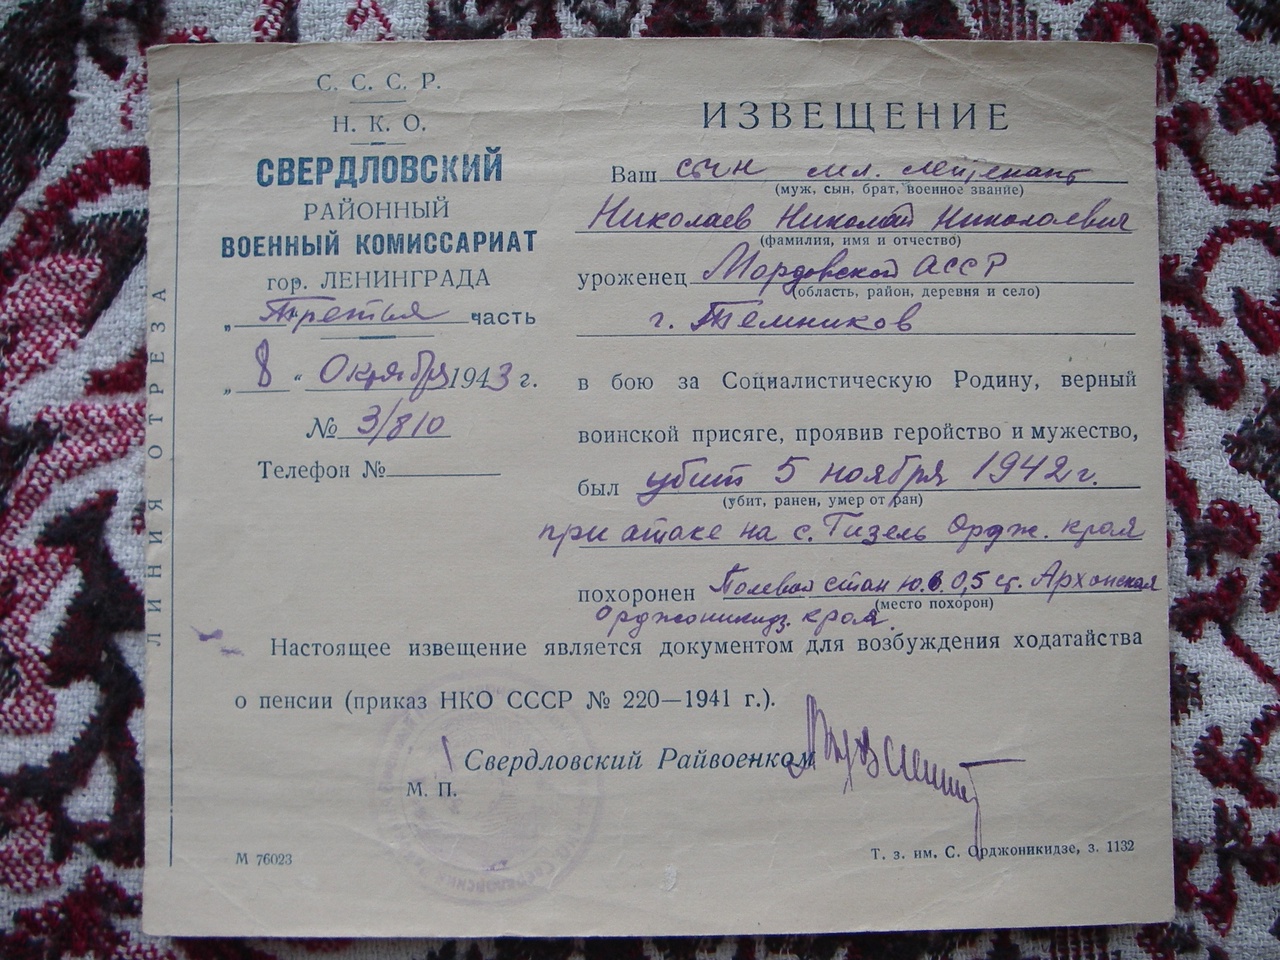 ЛИНИЯ ОТРЕЗА
С. С. С. Р.
Н. К. О.
СВЕРДЛОВСКИЙ
РАЙОННЫЙ
ВОЕННЫЙ КОМИССАРИАТ
гор. ЛЕНИНГРАДА
„Третья" часть
„8" Октября 1943 г.
№ 3/810
Телефон №
ИЗВЕЩЕНИЕ
Ваш сын мл. лейтенант
(муж, сын, брат, военное звание)
Николаев Николай Николаевич
(фамилия, имя и отчество)
уроженец Мордовской АССР
(область, район, деревня и село)
г. Темников
в бою за Социалистическую Родину, верный
воинской присяге, проявив геройство и мужество,
был убит 5 ноября 1942 г.
(убит, ранен, умер от ран)
при атаке на с. Гизель Ордж. края
похоронен Полевой стан ю.в. 0,5 ст. Архонская
(место похорон)
Орджоникидз. края.
Настоящее извещение является документом для возбуждения ходатайства
о пенсии (приказ НКО СССР № 220—1941 г.).
Свердловский Райвоенком
М. П.
М 76023
Т. з. им. С. Орджоникидзе, з. 1132